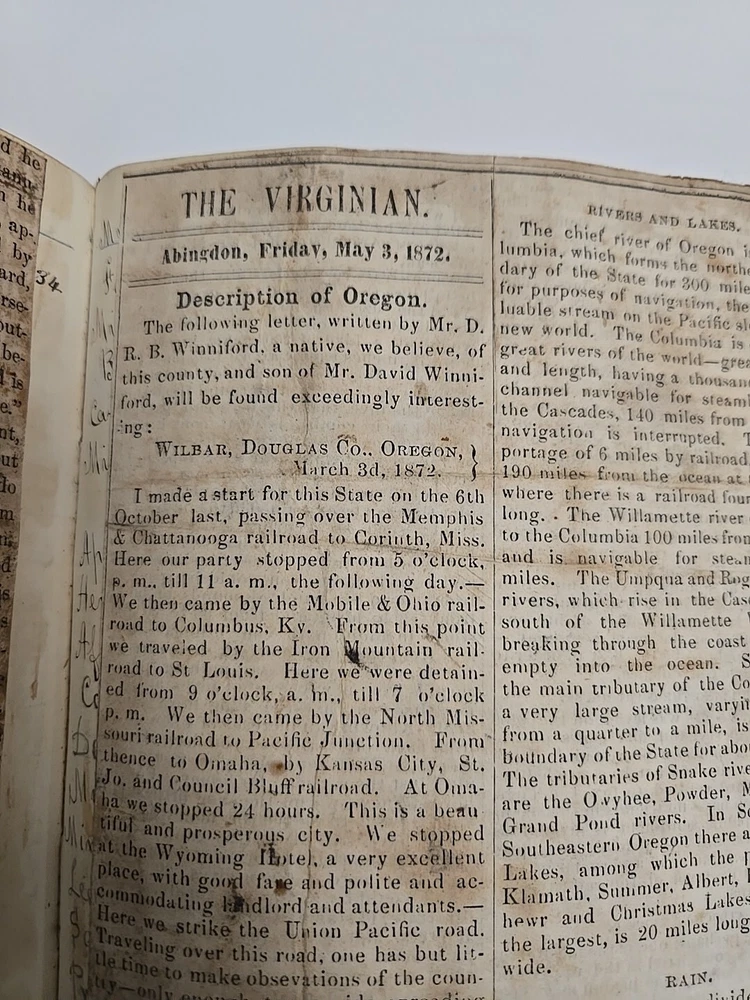 d he
n he
ap-
by
ard,
rse-
out-
be-
is
e."
nt,
ut
lo
34
THE VIRGINIAN.
Abingdon, Friday, May 3, 1872.
Description of Oregon.
The following letter, written by Mr. D.
R. B. Winniford, a native, we believe, of
this county, and son of Mr. David Winni-
ford, will be found exceedingly interest-
ing:
WILBAR, DOUGLAS CO., OREGON,
March 3d, 1872.
I made a start for this State on the 6th
October last, passing over the Memphis
& Chattanooga railroad to Corinth, Miss.
Here our party stopped from 5 o'clock,
p. m., till 11 a. m., the following day.—
We then came by the Mobile & Ohio rail-
road to Columbus, Ky. From this point
we traveled by the Iron Mountain rail-
road to St Louis. Here we were detain-
ed from 9 o'clock, a. m., till 7 o'clock
p. m. We then came by the North Mis-
souri railroad to Pacific Junction. From
thence to Omaha, by Kansas City, St.
Jo. and Council Bluff railroad. At Oma-
ha we stopped 24 hours. This is a beau
tiful and prosperous city. We stopped
at the Wyoming Hotel, a very excellent
place, with good fare and polite and ac-
commodating landlord and attendants.—
Here we strike the Union Pacific road.
Traveling over this road, one has but lit-
tle time to make obsevations of the coun-
try—only enough
RIVERS AND LAKES.
The chief river of Oregon i
lumbia, which forms the north
dary of the State for 300 mile
for purposes of navigation, the
luable stream on the Pacific sl
new world. The Columbia is
great rivers of the world—grea
and length, having a thousan
channel navigable for steam
the Cascades, 140 miles from
navigation is interrupted. T
portage of 6 miles by railroad
190 miles from the ocean at
where there is a railroad four
long. . The Willamette river
to the Columbia 100 miles from
and is navigable for steam
miles. The Umpqua and Rog
rivers, which rise in the Casc
south of the Willamette V
breaking through the coast
empty into the ocean. S
the main tributary of the Co
a very large stream, varyin
from a quarter to a mile, is
boundary of the State for abo
The tributaries of Snake rive
are the Owyhee, Powder, M
Grand Pond rivers. In So
Southeastern Oregon there a
Lakes, among which the p
Klamath, Summer, Albert,
hewr and Christmas Lakes
the largest, is 20 miles long
wide.
RAIN.